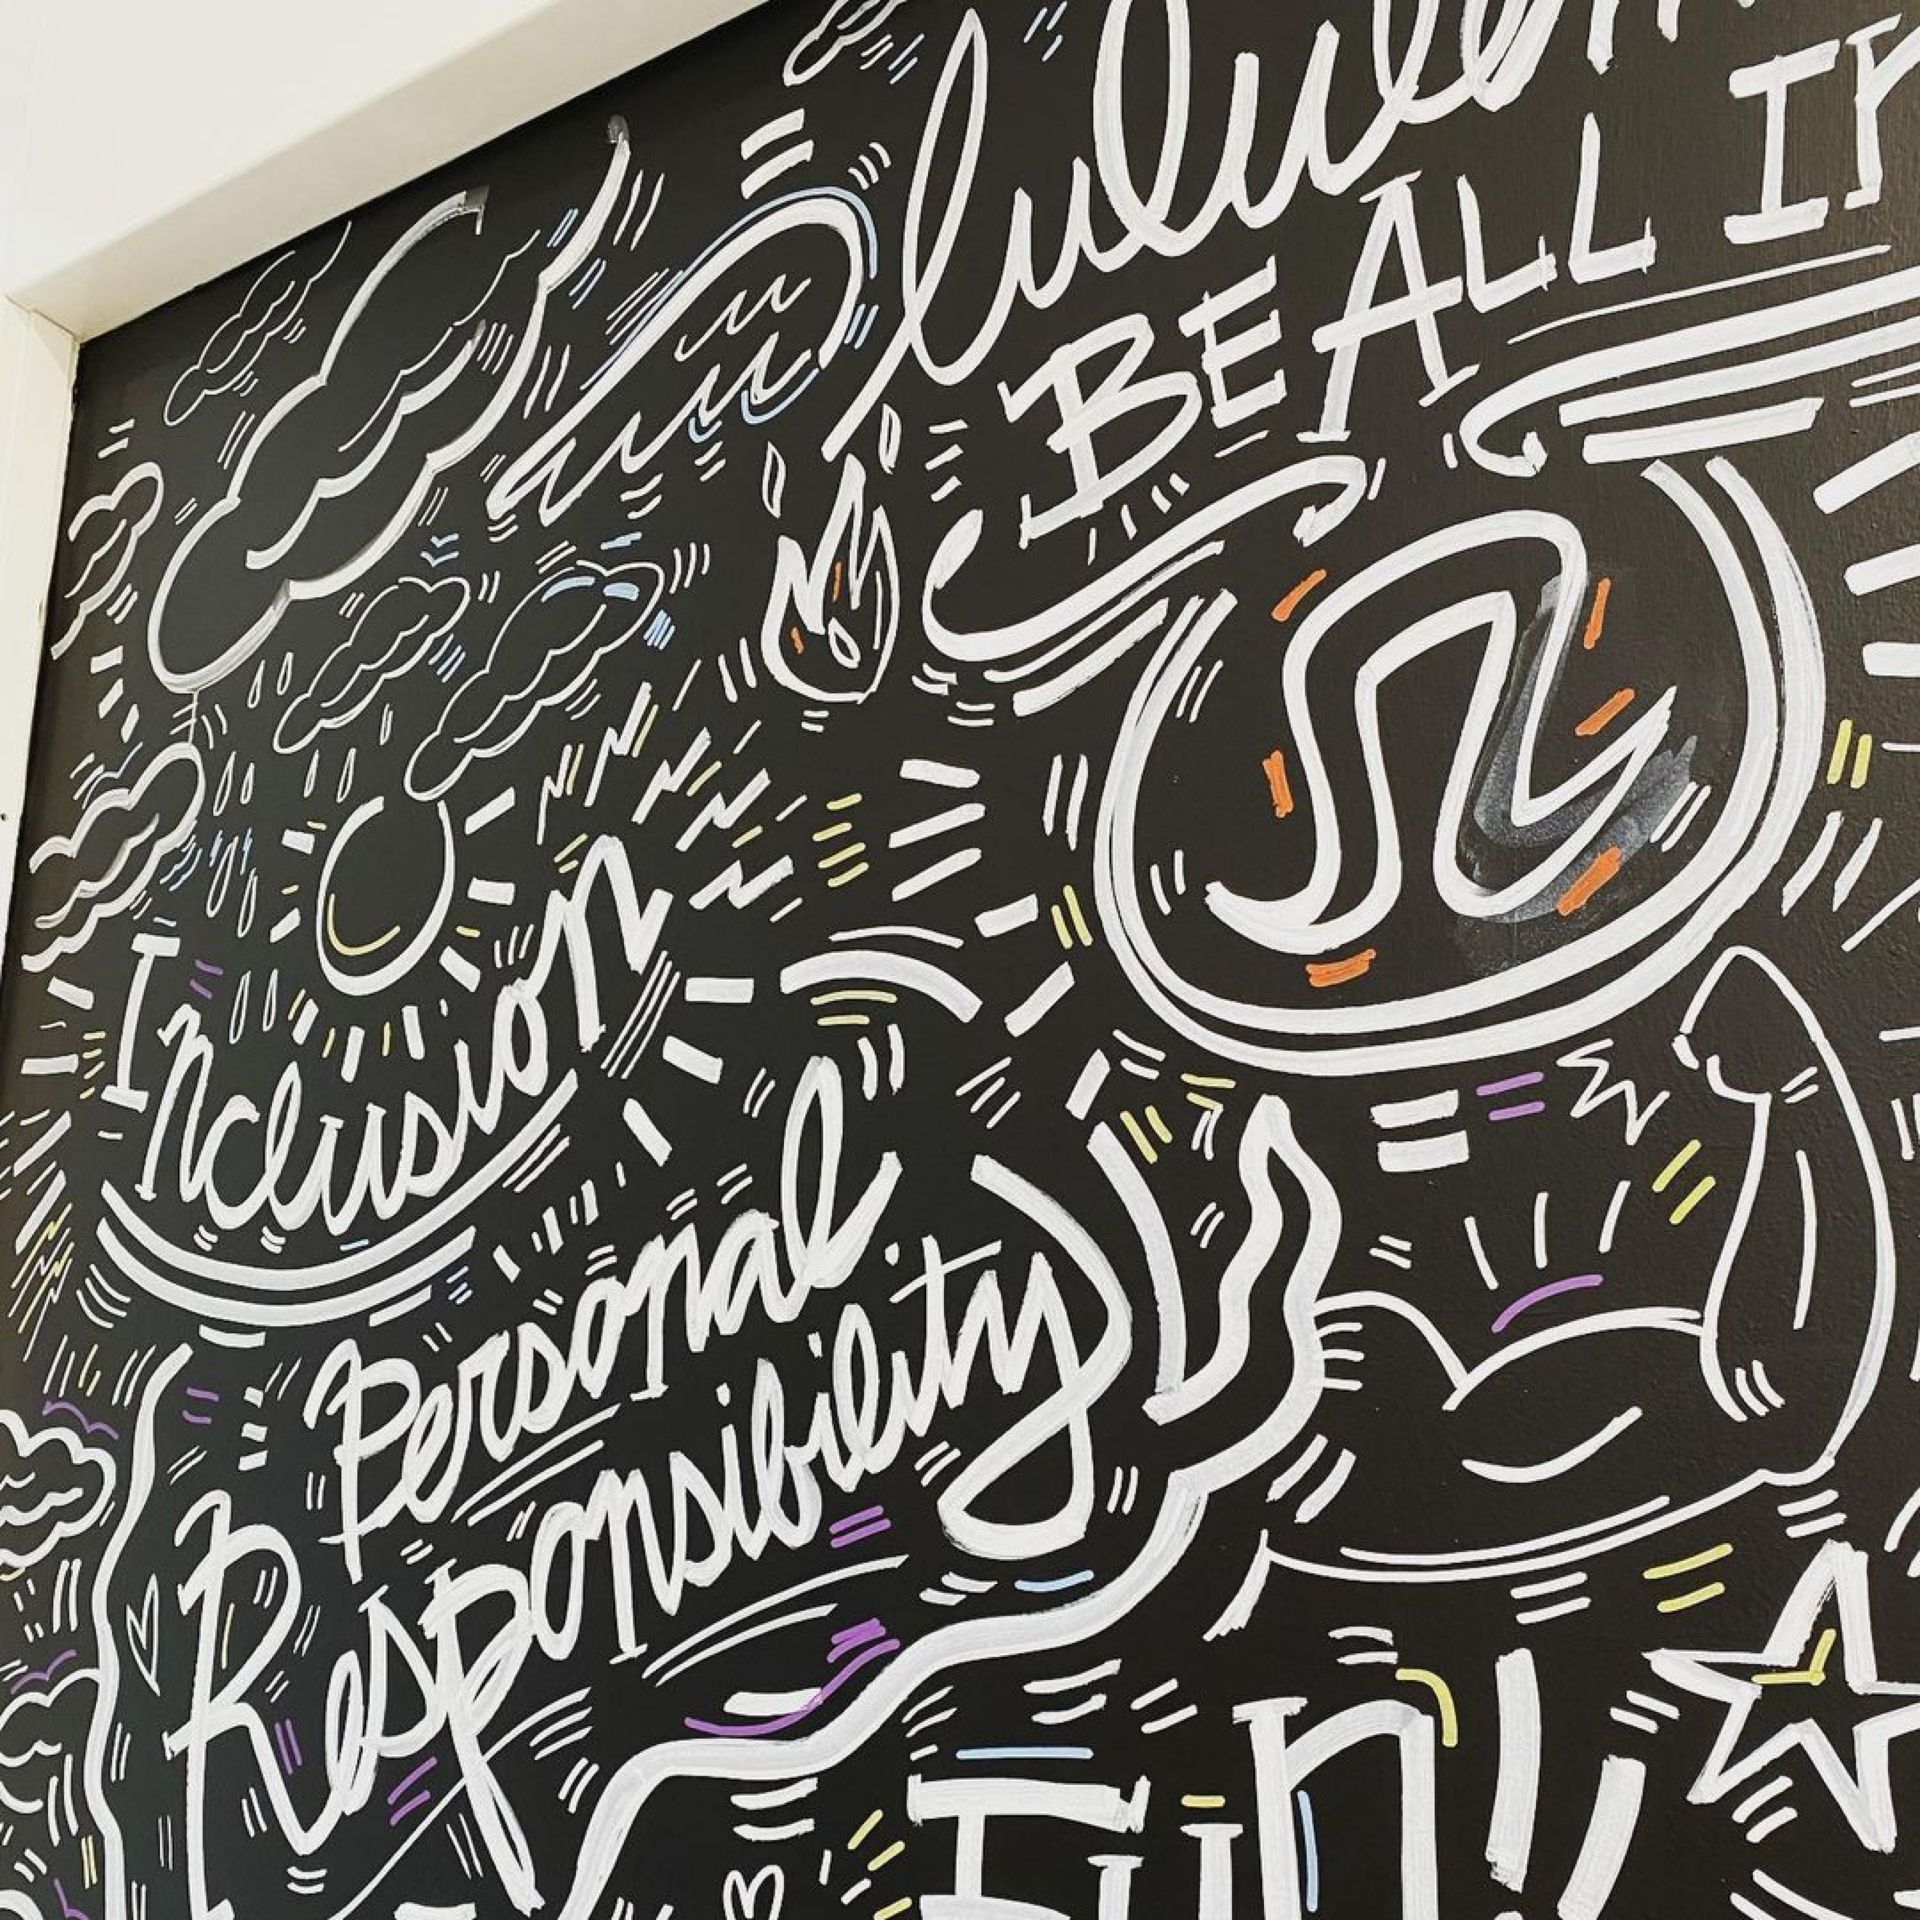 lulule
BE ALL IN
Inclusion
Personal
Responsibility
Fun!!